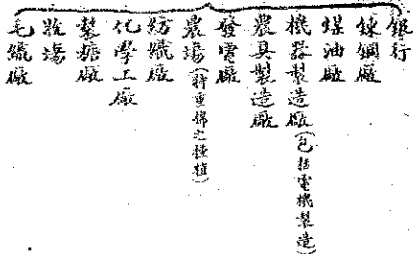 銀行
鍊鋼廠
煤油廠
機器製造廠(包括電機製造)
農具製造廠
發電廠
農場(特重棉之種植)
紡織廠
化學工廠
製糖廠
牧場
毛織廠